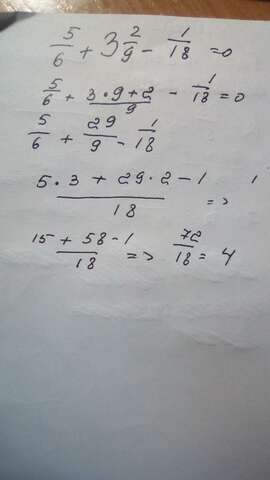 5/6 + 3 2/9 - 1/18 = 0
5/6 + 3·9+2/9 - 1/18 = 0
5/6 + 29/9 - 1/18
5·3 + 29·2 - 1/18 =>
15 + 58 - 1/18 => 72/18 = 4